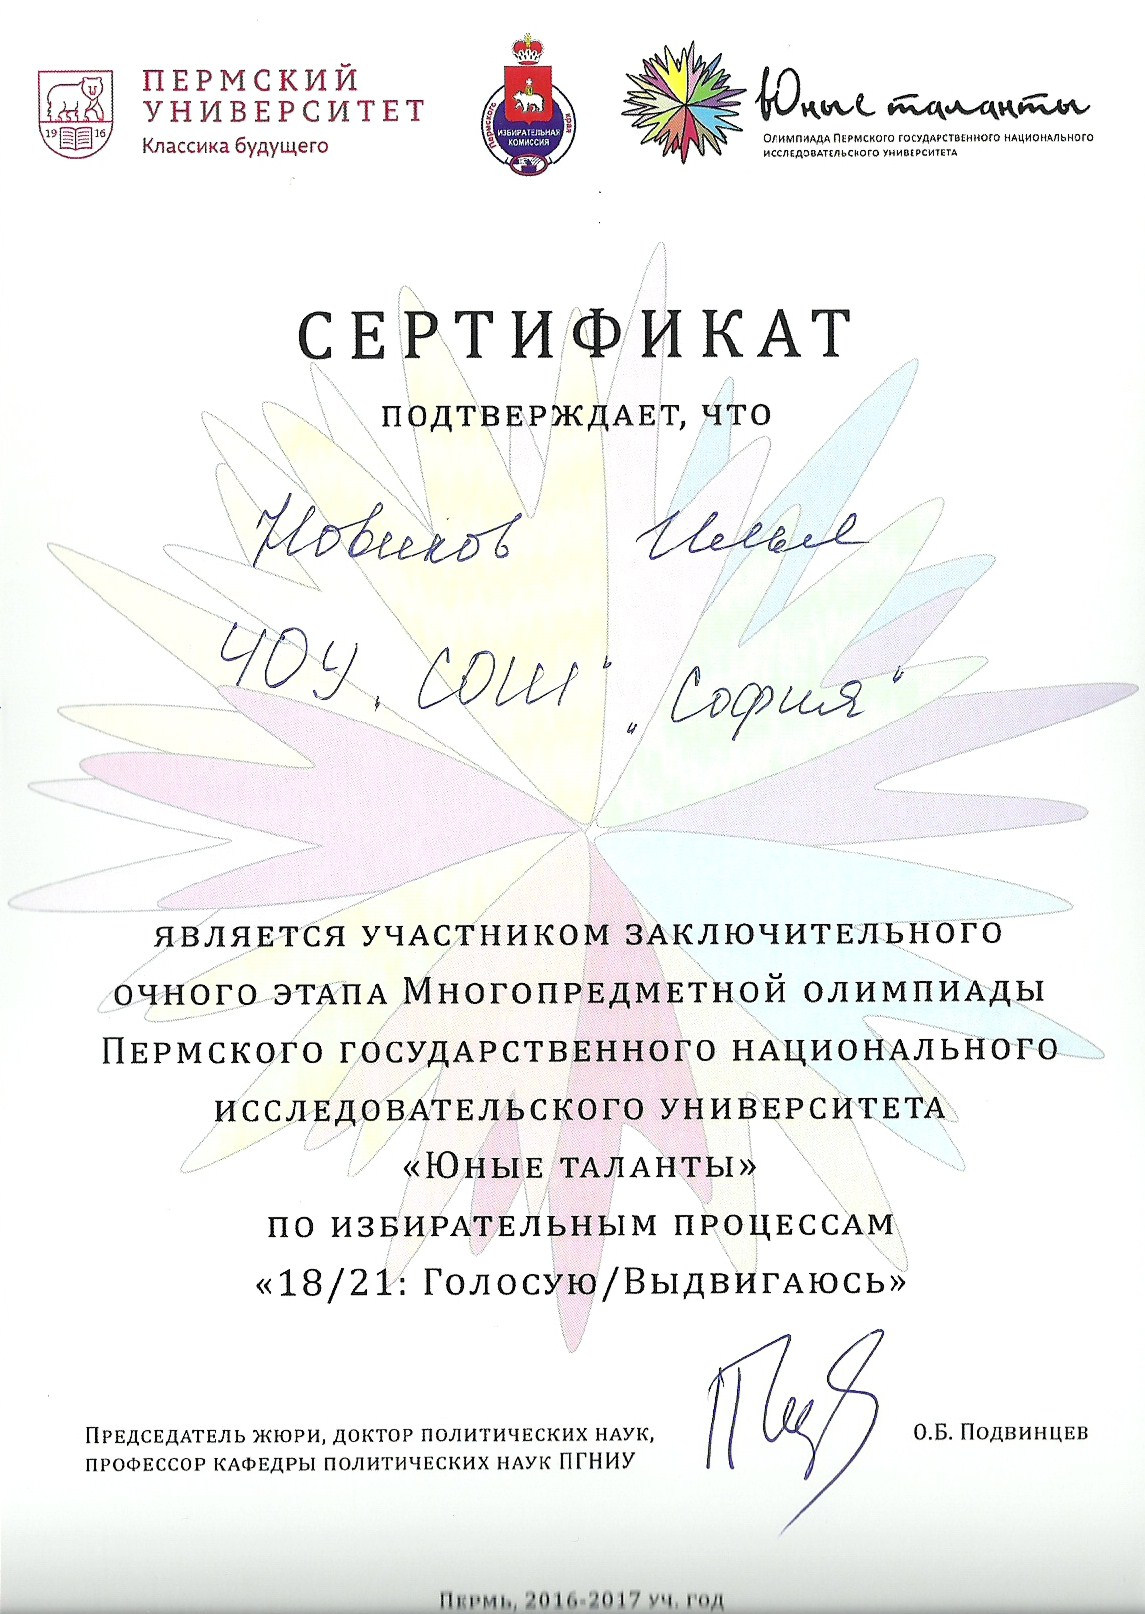 ПЕРМСКИЙ
УНИВЕРСИТЕТ
Классика будущего
1916
Пермского края
ИЗБИРАТЕЛЬНАЯ
КОМИССИЯ
Юные таланты
Олимпиада Пермского государственного национального
исследовательского университета
СЕРТИФИКАТ
ПОДТВЕРЖДАЕТ, ЧТО
Новиков Илья
ЧОУ „СОШ" „София"
ЯВЛЯЕТСЯ УЧАСТНИКОМ ЗАКЛЮЧИТЕЛЬНОГО
ОЧНОГО ЭТАПА МНОГОПРЕДМЕТНОЙ ОЛИМПИАДЫ
ПЕРМСКОГО ГОСУДАРСТВЕННОГО НАЦИОНАЛЬНОГО
ИССЛЕДОВАТЕЛЬСКОГО УНИВЕРСИТЕТА
«ЮНЫЕ ТАЛАНТЫ»
ПО ИЗБИРАТЕЛЬНЫМ ПРОЦЕССАМ
«18/21: ГОЛОСУЮ/ВЫДВИГАЮСЬ»
ПРЕДСЕДАТЕЛЬ ЖЮРИ, ДОКТОР ПОЛИТИЧЕСКИХ НАУК,
ПРОФЕССОР КАФЕДРЫ ПОЛИТИЧЕСКИХ НАУК ПГНИУ
О.Б. ПОДВИНЦЕВ
ПЕРМЬ, 2016-2017 УЧ. ГОД